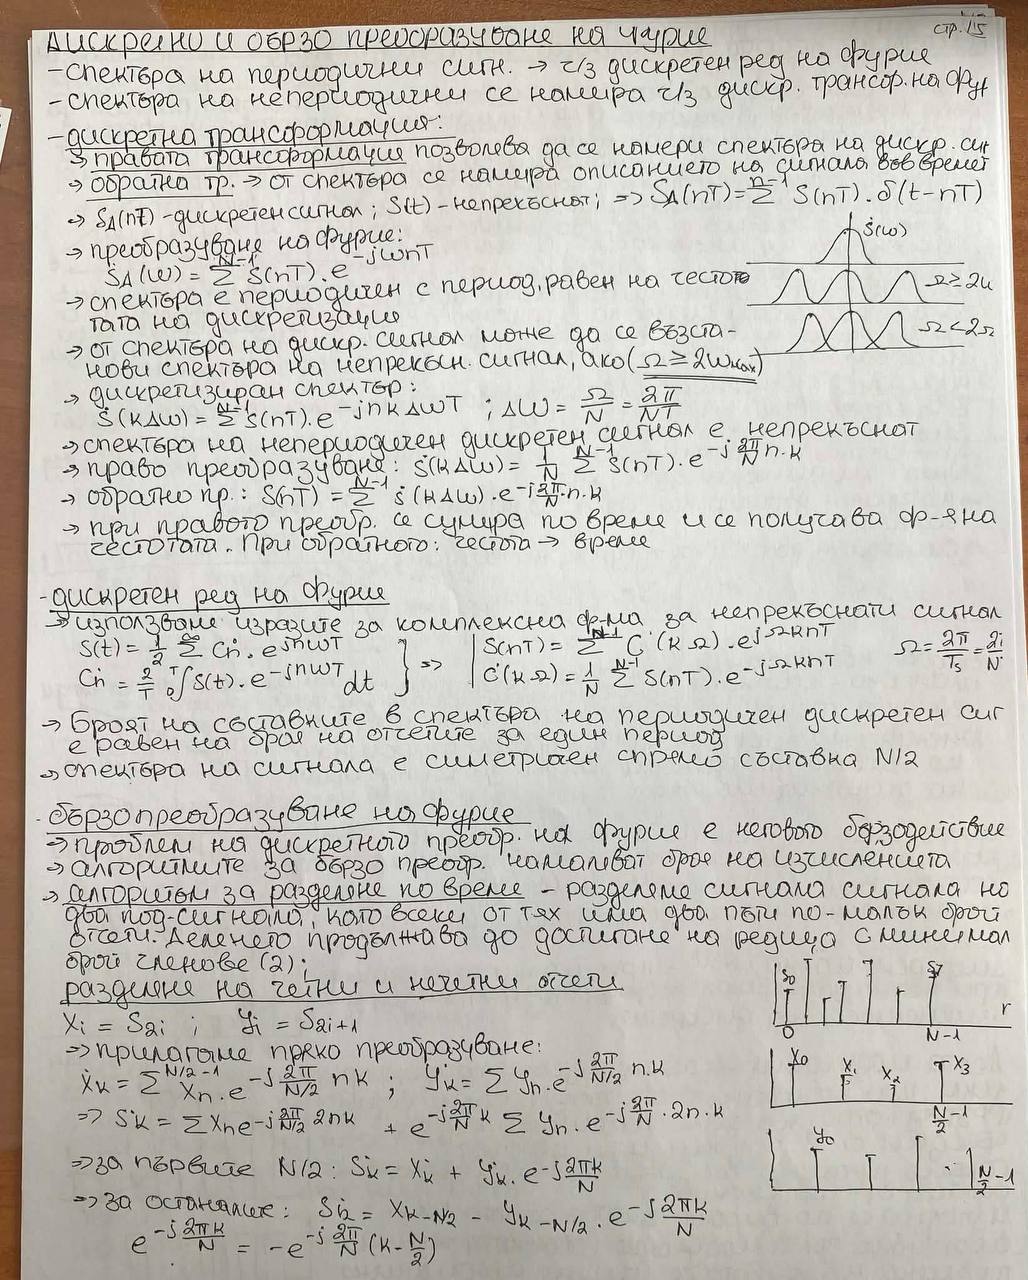 стр. 15
Дискретно и бързо преобразуване на Фурие
- спектъра на периодични сигн. → ч/з дискретен ред на фурие
- спектъра на непериодични се намира ч/з дискр. трансф. на фур
- дискретна трансформация:
→ правата трансформация позволява да се намери спектъра на дискр. сиг
→ обратна тр. → от спектъра се намира описанието на сигнала във времет
→ SД(nT) - дискретен сигнал; S(t) - непрекъснат; => SД(nT) = Σ^{n-1} S(nT).δ(t-nT)
→ преобразуване на Фурие:
ṠД(w) = Σ^{N-1} S(nT).e^{-jwnT}
Ṡ(w)
→ спектъра е периодичен с период, равен на често
тата на дискретизация
Ω ≥ 2ω
Ω < 2Ω
→ от спектъра на дискр. сигнал може да се възста-
нови спектъра на непрекъсн. сигнал, ако (Ω ≥ 2wmax)
→ дискретизиран спектър:
Ṡ(kΔw) = Σ^{N-1} S(nT).e^{-jnkΔwT} ; Δw = Ω/N = 2π/NT
→ спектъра на непериодичен дискретен сигнал е непрекъснат
→ право преобразуване: Ṡ(kΔw) = 1/N Σ^{N-1} S(nT).e^{-j 2π/N n.k}
→ обратно пр.: S(nT) = Σ^{N-1} Ṡ(kΔw).e^{-j 2π/N .n.k}
→ при правото преобр. се сумира по време и се получава ф-я на
честотата. При обратното: честота → време
- дискретен ред на фурие
→ използваме изразите за комплексна ф-ма за непрекъснати сигнал
S(t) = 1/2 Σ^{∞} Ċn.e^{jnwT}
Ċn = 2/T 0∫^{T} S(t).e^{-jnwT} dt
=>
S(nT) = Σ^{N-1} Ċ(kΩ).e^{jΩknT}
Ċ(kΩ) = 1/N Σ^{N-1} S(nT).e^{-jΩknT}
Ω = 2π/Ts = 2i/N
→ Броят на съставките в спектъра на периодичен дискретен сиг
е равен на броя на отчетите за един период
→ спектъра на сигнала е симетричен спрямо съставка N/2
- бързо преобразуване на фурие
→ проблем на дискретното преобр. на фурие е неговото бързодействие
→ алгоритмите за бързо преобр. намаляват броя на изчисленията
→ алгоритъм за разделяне по време - разделяме сигнала сигнала на
два под-сигнала, като всеки от тях има два пъти по-малък брой
отчети. Деленето продължава до достигане на редица с минимал
брой членове (2);
разделяне на четни и нечетни отчети
Xi = S2i ; Yi = S2i+1
S0 S7 r
0 N-1
=> прилагаме пряко преобразуване:
Ẋk = Σ^{N/2-1} Xn.e^{-j 2π/(N/2) nk} ; Ẏk = Σ Yn.e^{-j 2π/(N/2) n.k}
X0 X1 X2 X3
N/2 -1
=> Ṡk = Σ Xn e^{-j 2π/(N/2) 2nk} + e^{-j 2π/N k} Σ Yn.e^{-j 2π/N .2n.k}
y0
N/2 -1
=> за първите N/2: Ṡk = Ẋk + Ẏk.e^{-j 2πk/N}
=> за останалите: Ṡk = Xk-N/2 - Yk-N/2.e^{-j 2πk/N}
e^{-j 2πk/N} = -e^{-j 2π/N (k-N/2)}